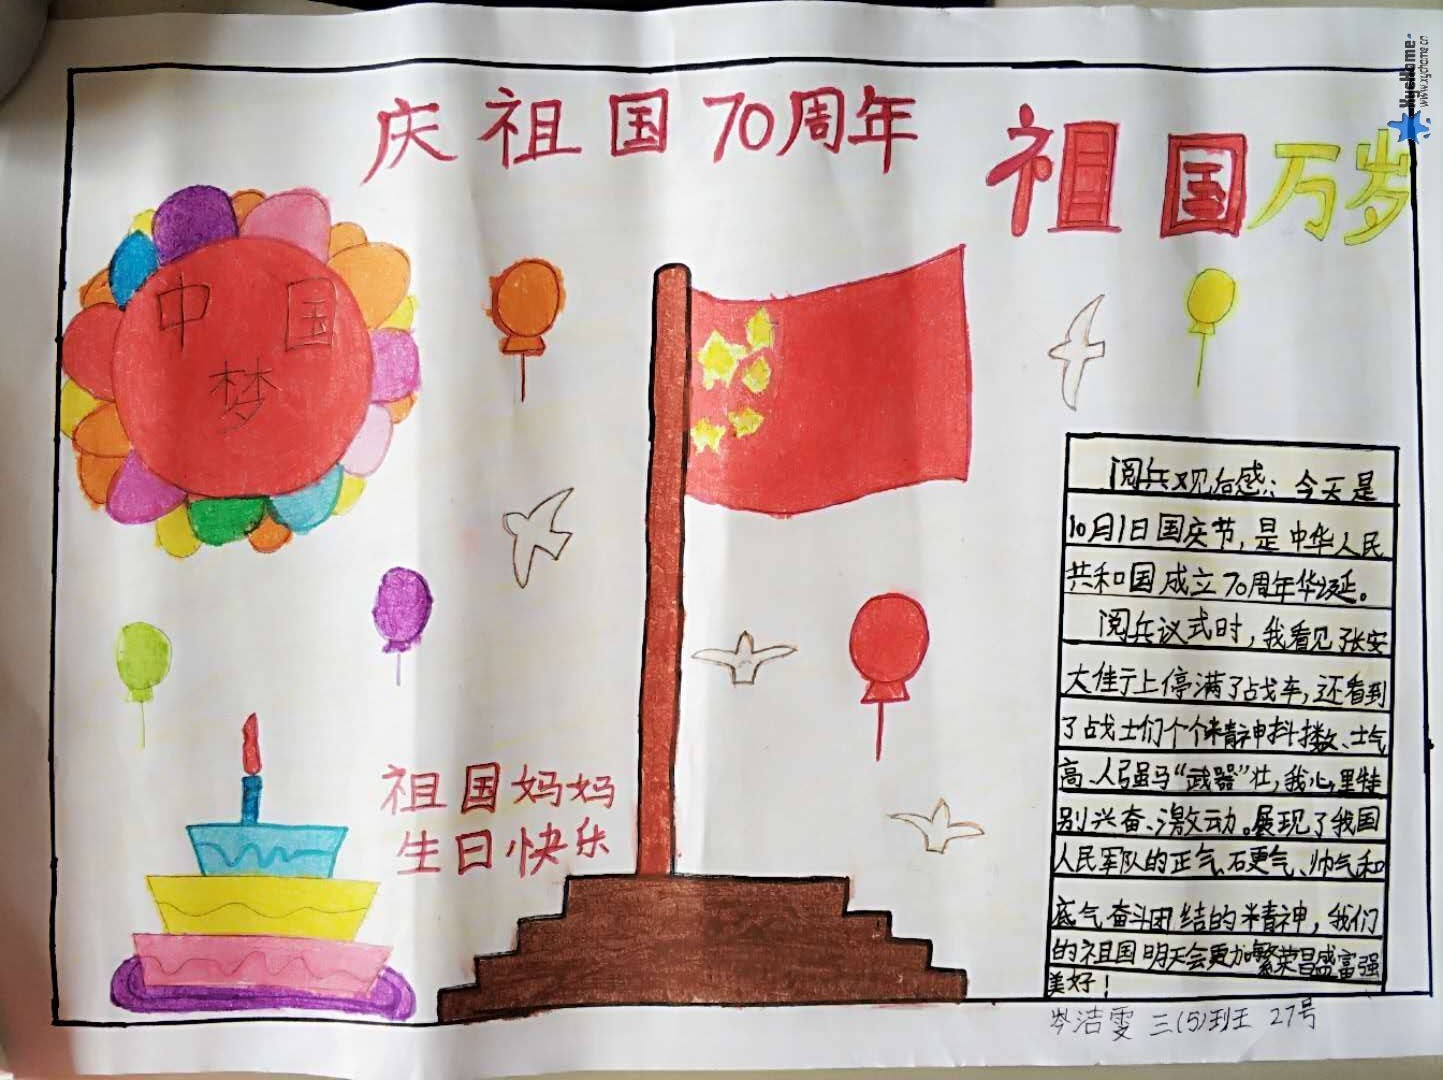 庆祝祖国70周年
祖国万岁
中国
梦
祖国妈妈
生日快乐
阅兵观后感：今天是
10月1日国庆节，是中华人民
共和国成立70周年华诞。
阅兵议式时，我看见了长安
大佳亍上停满了战车，还看到
了战士们个个精神抖擞、士气
高、人强马“武器”壮，我心里特
别兴奋、激动。展现了我国
人民军队的正气、硬气、帅气和
底气奋斗团结的精神，我们
的祖国明天会更加繁荣昌盛富强
美好！
岑洁雯 三(5)班 27号
XycHome
www.xychome.cn